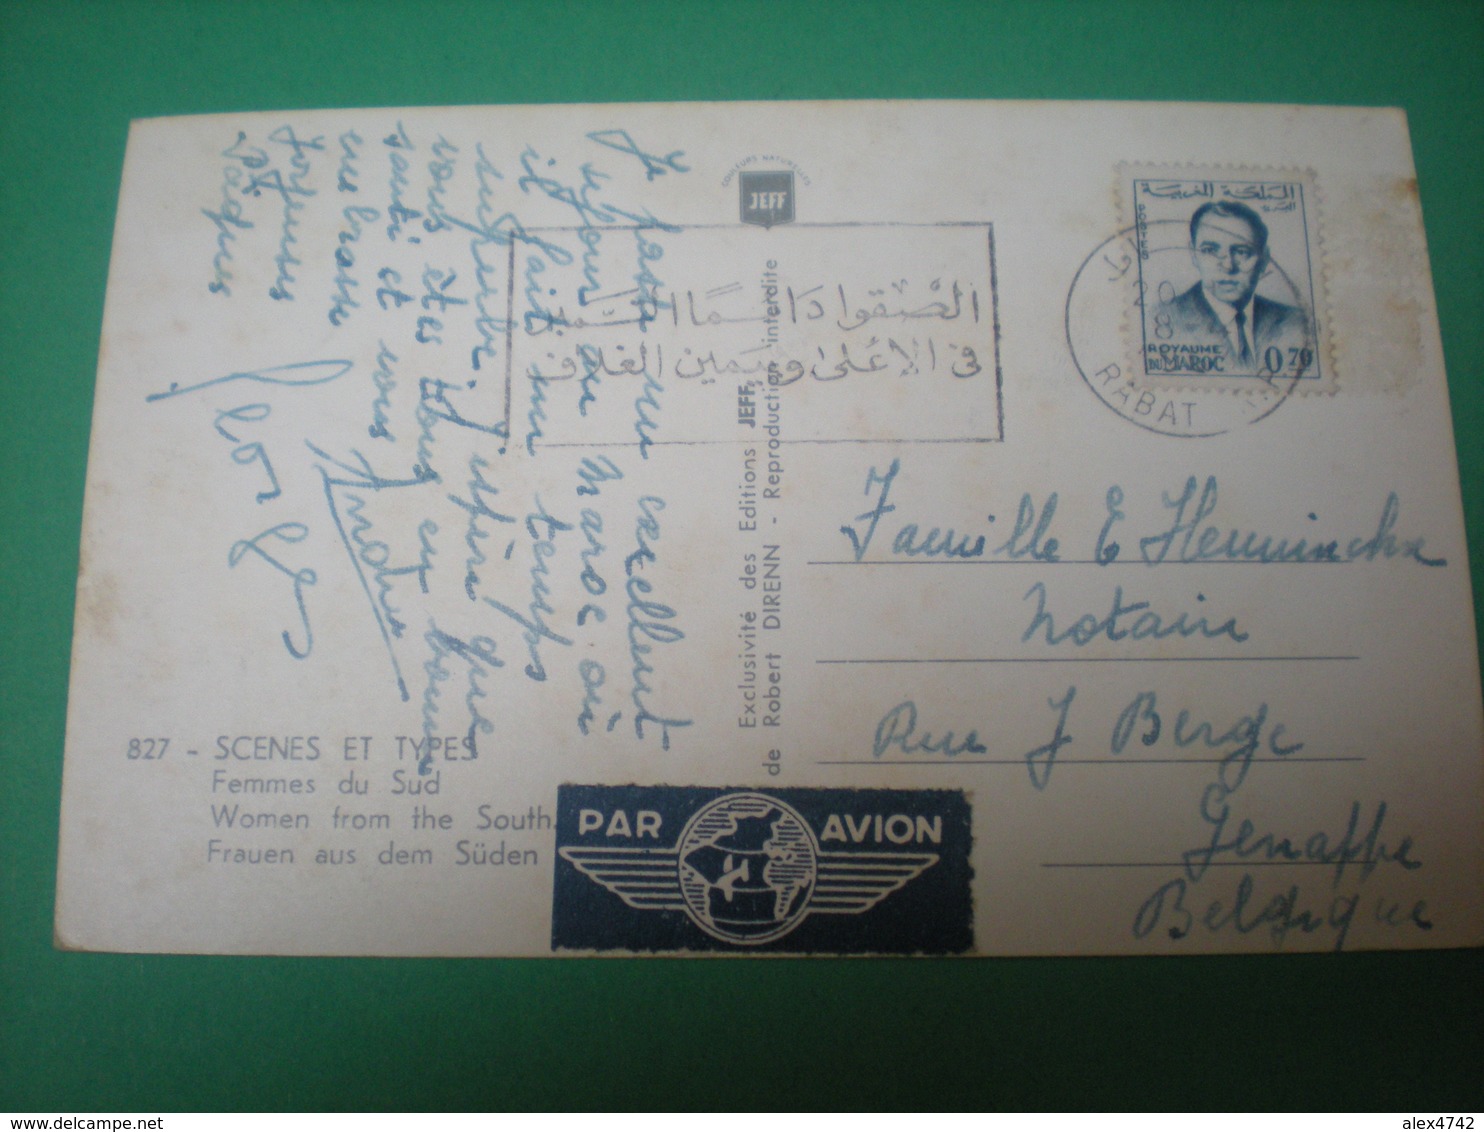 Je passe un excellent
séjour au Maroc où
il fait un temps
superbe. J'espère que
vous êtes tous en bonne
santé et vous
embrasse
Joyeuses
Pâques
827 - SCENES ET TYPES
Femmes du Sud
Women from the South
Frauen aus dem Süden
COULEURS NATURELLES
JEFF
Exclusivité des Editions JEFF,
de Robert DIRENN - Reproduction interdite
الصقوا دائما السمة
في الأعلى ويمين الغلاف
المملكة المغربية
POSTES
ROYAUME
DU MAROC 0,70
20
8
RABAT
Famille E
Notaire
Rue J Berge
Genappe
Belgique
PAR AVION
alex4742